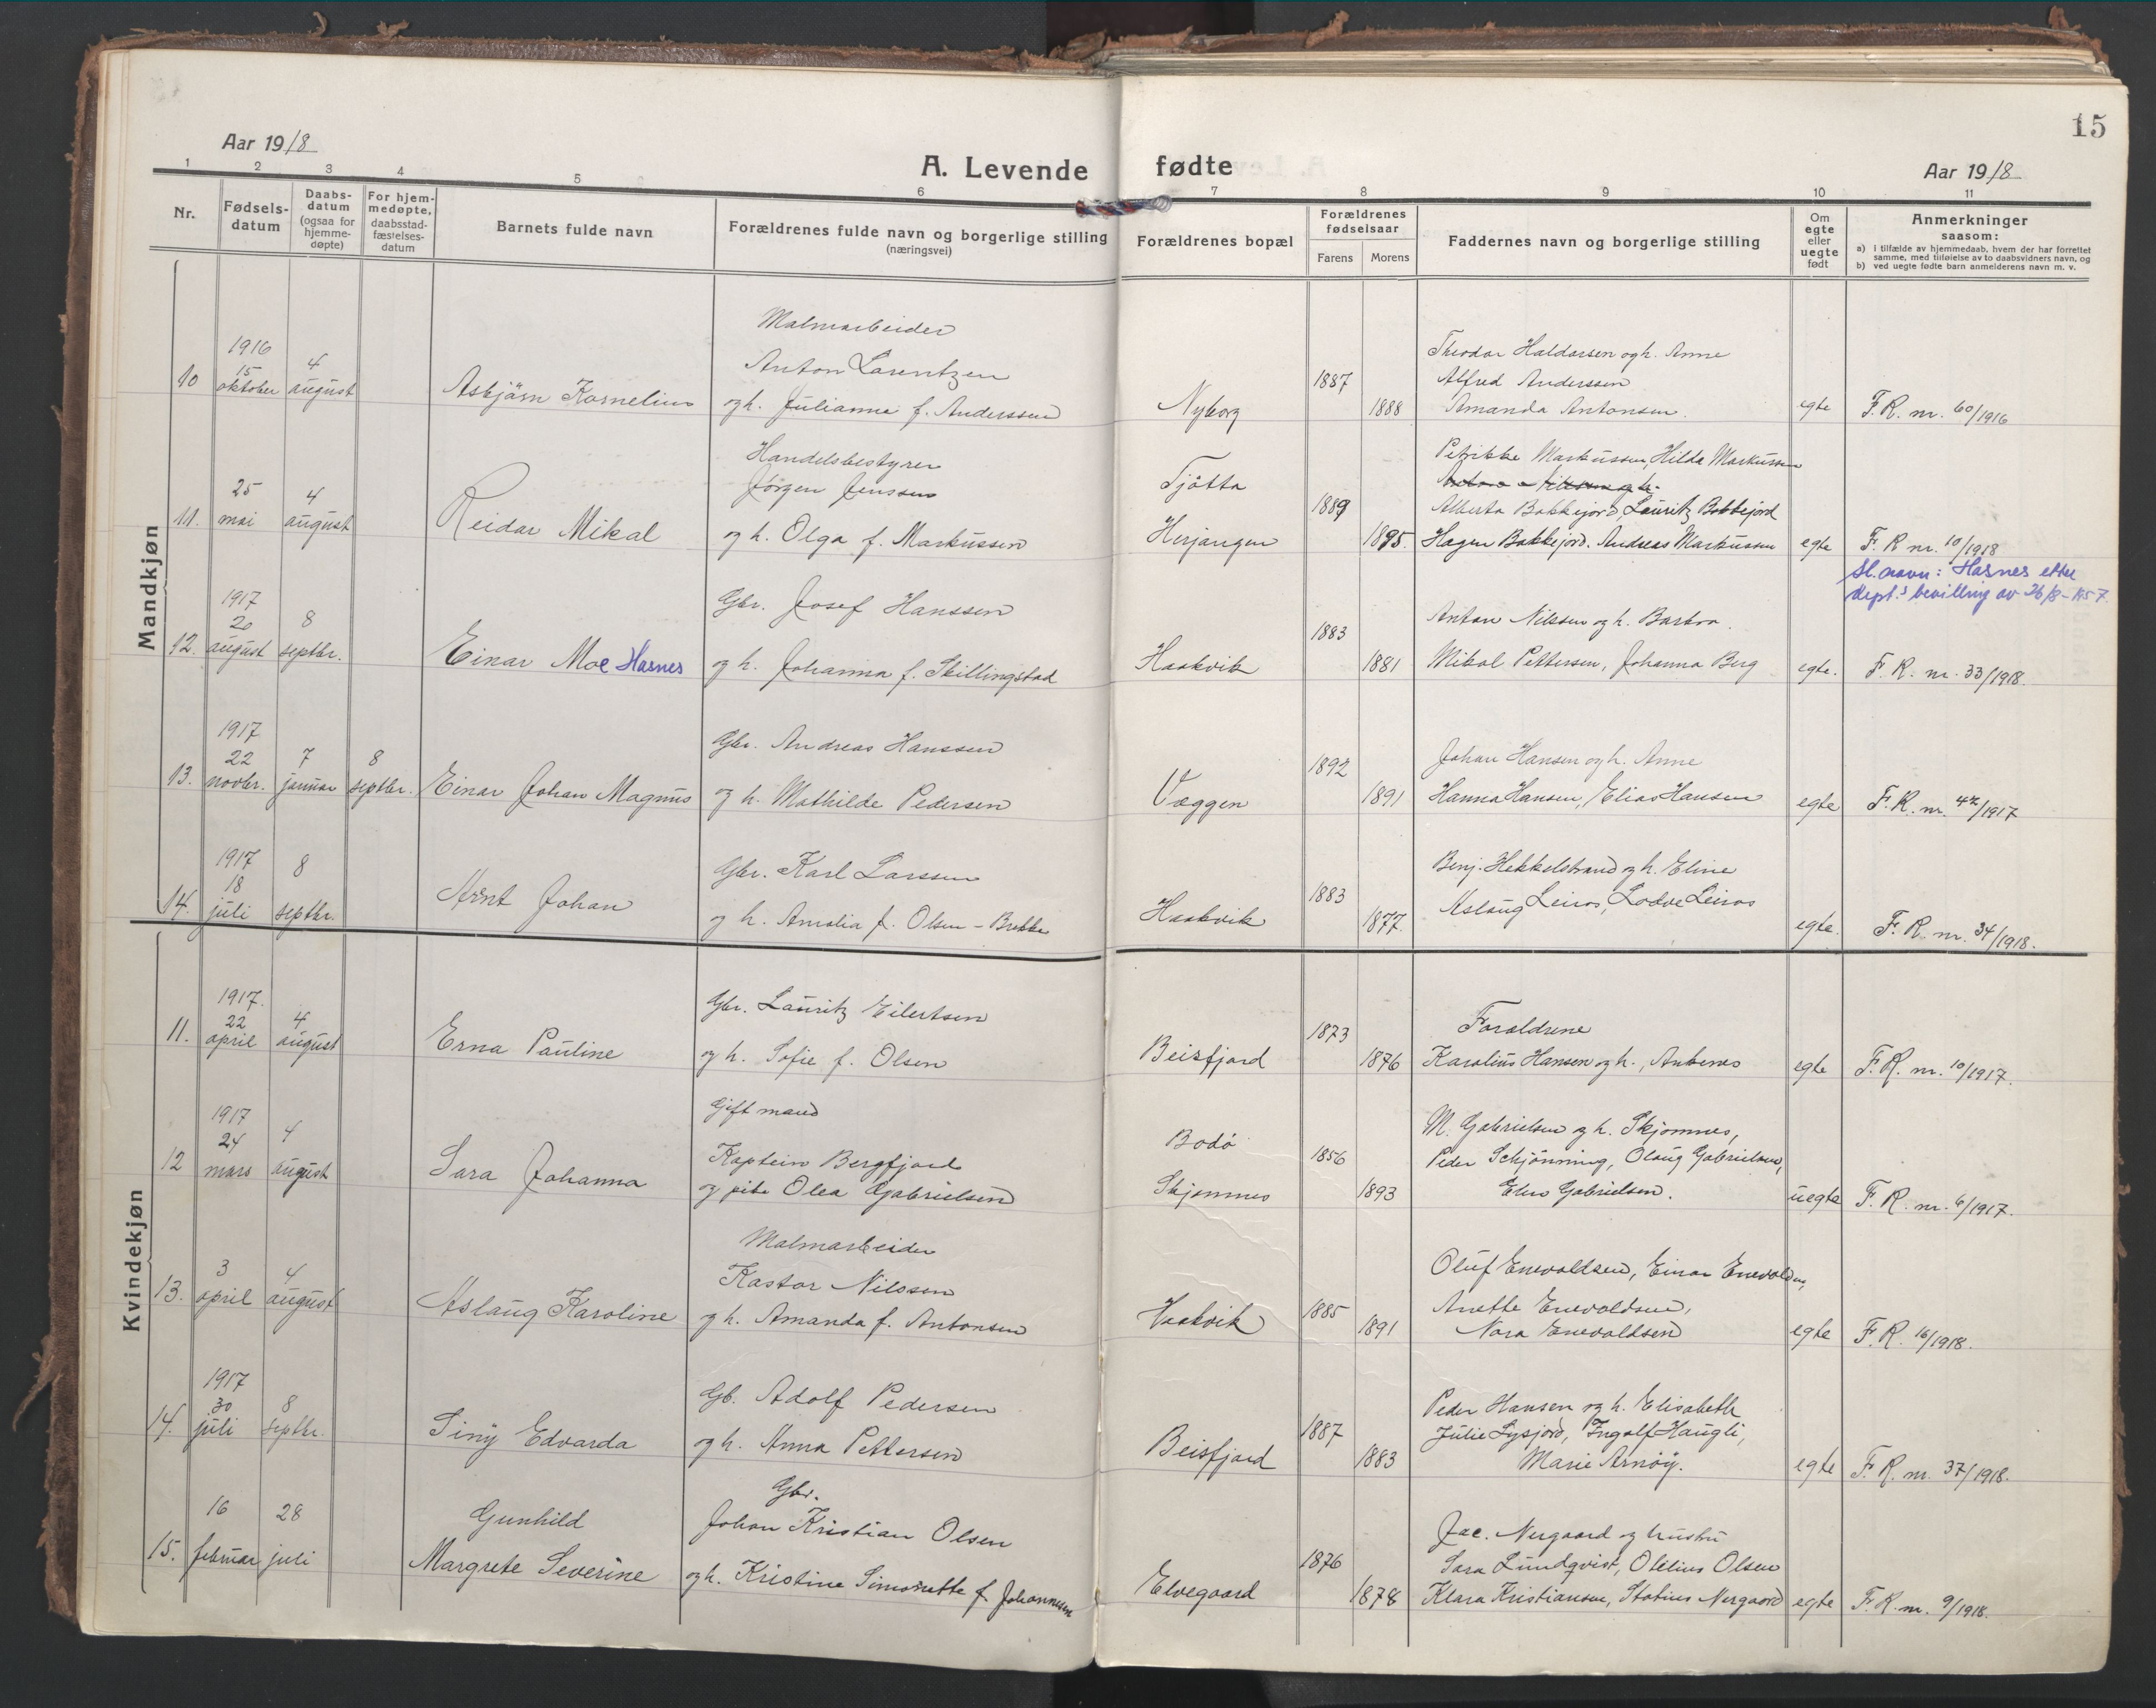 15
Aar 1918
A. Levende fødte
Aar 1918
1 2 3 4 5 6 7 8 9 10 11
Nr.
Fødsels-
datum
Daabs-
datum
(ogsaa for
hjemme-
døpte)
For hjem-
medøpte,
daabsstad-
fæstelses-
datum
Barnets fulde navn
Forældrenes fulde navn og borgerlige stilling
(næringsvei)
Forældrenes bopæl
Forældrenes
fødselsaar
Farens Morens
Faddernes navn og borgerlige stilling
Om
egte
eller
uegte
født
Anmerkninger
saasom:
a) i tilfælde av hjemmedaab, hvem der har forrettet
samme, med tilføielse av to daabsvidners navn, og
b) ved uegte fødte barn anmelderens navn m. v.
Mandkjøn
10
1916
15
oktober
4
august
Asbjørn Kornelius
Malmarbeider
Anton Larentzen
og h. Julianna f. Anderssen
Nyborg
1887
1888
Theodor Haldorsen og h. Anne
Alfred Anderssen
Amanda Antonsen.
egte
F. R. nr. 60/1916
11.
25
mai
4
august
Reidar Mikal
Handelsbestyrer
Jørgen Jenssen
og h. Olga f. Markussen
Tjøtta
Herjangen
1889
1895.
Petrikke Markussen, Hilda Markussen
Alberta Bakkejord, Lauritz Bakkejord
Hagen Bakkejord. Andreas Markussen
egte
F. R nr. 10/1918
12.
1917
20
august
8
septbr.
Einar Moe Hasnes
Gbr. Josef Hanssen
og h. Johanna f. Skillingstad
Haakvik
1883
1881
Anton Nilssen og h. Barbra.
Mikal Pettersen, Johanna Berg
egte.
Sl.navn: Hasnes etter
dept.s bevilling av 26/8-1957.
F. R. nr. 33/1918.
13.
1917
22
novbr.
7
januar
8
septbr.
Einar Johan Magnus
Gbr. Andreas Hanssen
og h. Mathilde Pedersen
Væggen
1892
1891
Johan Hansen og h. Anne
Hanna Hansen, Elias Hansen
egte
F. R. nr. 42/1917
14.
1917
18
juli
8
septbr.
Arnt Johan
Gbr. Karl Larssen
og h. Amalia f. Olsen - Brekke
Haakvik
1883
1877.
Benj. Hekkelstrand og h. Eline
Aslaug Leiros, Lodve Leiros
egte.
F. R. nr. 34/1918.
Kvindekjøn
11.
1917.
22
april
4
august
Erna Pauline
Gbr. Lauritz Eilertsen
og h. Sofie f. Olsen
Beisfjord
1873
1876
Forældrene
Karolius Hansen og h., Ankenes
egte
F. R. nr. 10/1917.
12
1917
24
mars
4
august
Sara Johanna
Gift mand
Kaptein Bergfjord
og pike Olea Gabrielsen
Bodø
Skjomnes
1856
1893
M. Gabrielsen og h. Skjomnes,
Peder Schjønning, Olaug Gabrielsen,
Elen Gabrielsen.
uegte
F. R. nr. 6/1917.
13.
3
april
4
august
Aslaug Karoline
Malmarbeider
Kastor Nilssen
og h. Amanda f. Antonsen
Haakvik
1885
1891
Oluf Enevoldsen, Einar Enevoldsen,
Anette Enevoldsen,
Nora Enevoldsen
egte
F. R. 16/1918.
14.
1917
30
juli
8
septbr.
Siny Edvarda
Gb. Adolf Pedersen
og h. Anna Pettersen
Beisfjord
1887
1883
Peder Hansen og h. Elisabeth
Julie Lysjord, Ingolf Haugli,
Marie Arnøy.
egte
F. R. nr. 37/1918.
15.
16
februar
28
juli
Gunhild
Margrete Severine
Gbr.
Johan Kristian Olsen
og h. Kristine Simonette f. Johannesen
Elvegaard
1876
1878
Jac. Nergaard og hustru
Sara Lundqvist, Otelius Olsen
Klara Kristiansen, Statius Nergaard
egte
F. R. nr. 9/1918.